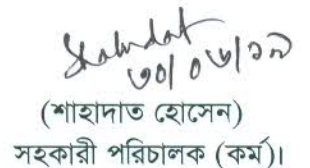 Shahadat
৩০/০৬/১৯
(শাহাদাত হোসেন)
সহকারী পরিচালক (কর্ম)।